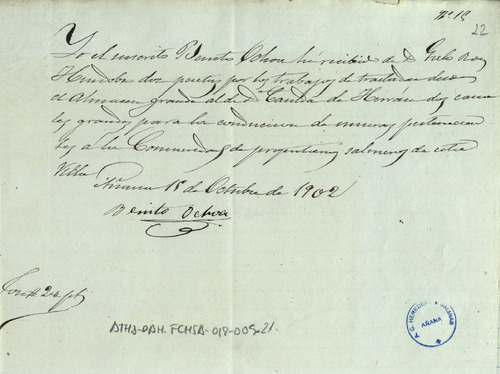 Nº 18
22
Yo el suscrito Benito Ochoa he recibido de D.
dos pesetas por los trabajos de trasladar desde
el Almacen grande al de Dª Candida de Herrán dos cana
les grandes para la conducion de muera, pertenecien
tes a la Comunidad de propietarios salineros de esta
Villa
Añana 15 de Octubre de 1902
Benito Ochoa
Son 2 pts
ATHA-DAH-FCHSA-018-005-21.
SALINAS
AÑANA